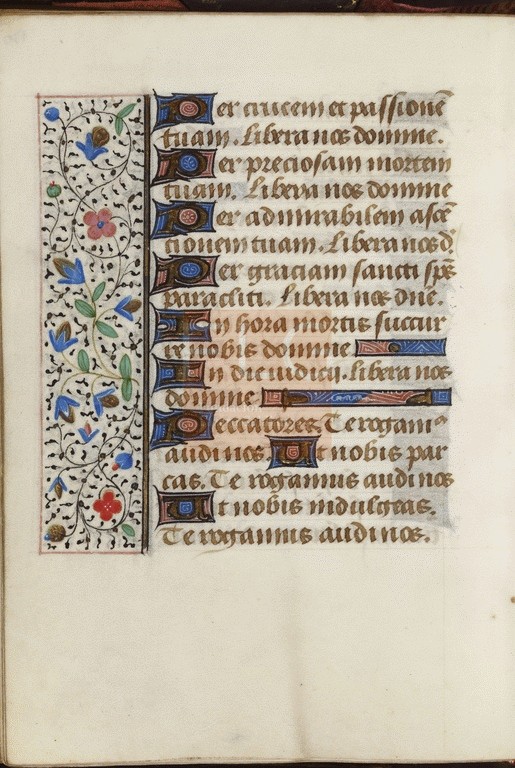 Per crucem et passionē
tuam. Libera nos domine.
Per preciosam mortem
tuam. Libera nos domine
Per admirabilem ascē
cionem tuam. Libera nos d
Per graciam sancti sp̄s
paracliti. Libera nos dn̄e.
In hora mortis succur
re nobis domine
In die iudicij. libera nos
domine
Peccatores. Te rogamꝰ
audi nos. Ut nobis par
cas. Te rogamus audi nos
Ut nobis indulgeas.
Te rogamus audi nos.